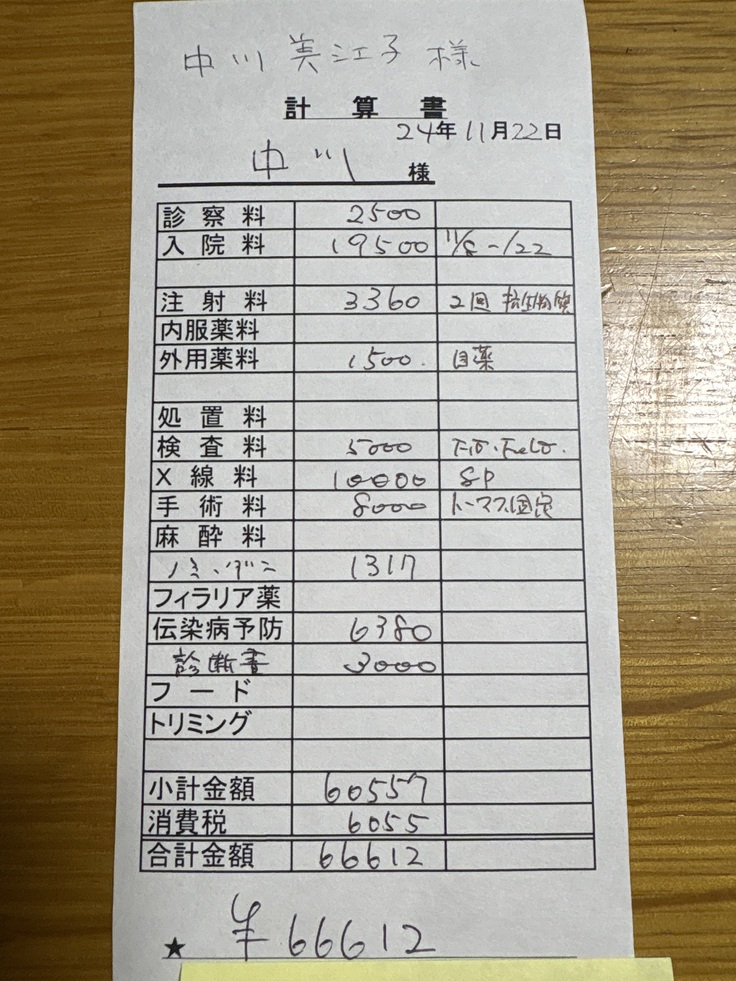 中川 美江子 様
計算書
24年11月22日
中川 様
診察料 2500
入院料 19500 11/8-/22
注射料 3360 2回 抗生物質
内服薬料
外用薬料 1500. 目薬
処置料
検査料 5000 FIV・FeLV.
X線料 10000 8P
手術料 8000 トーマス固定
麻酔料
ノミ・ダニ 1317
フィラリア薬
伝染病予防 6380
診断書 3000
フード
トリミング
小計金額 60557
消費税 6055
合計金額 66612
★ ¥66612